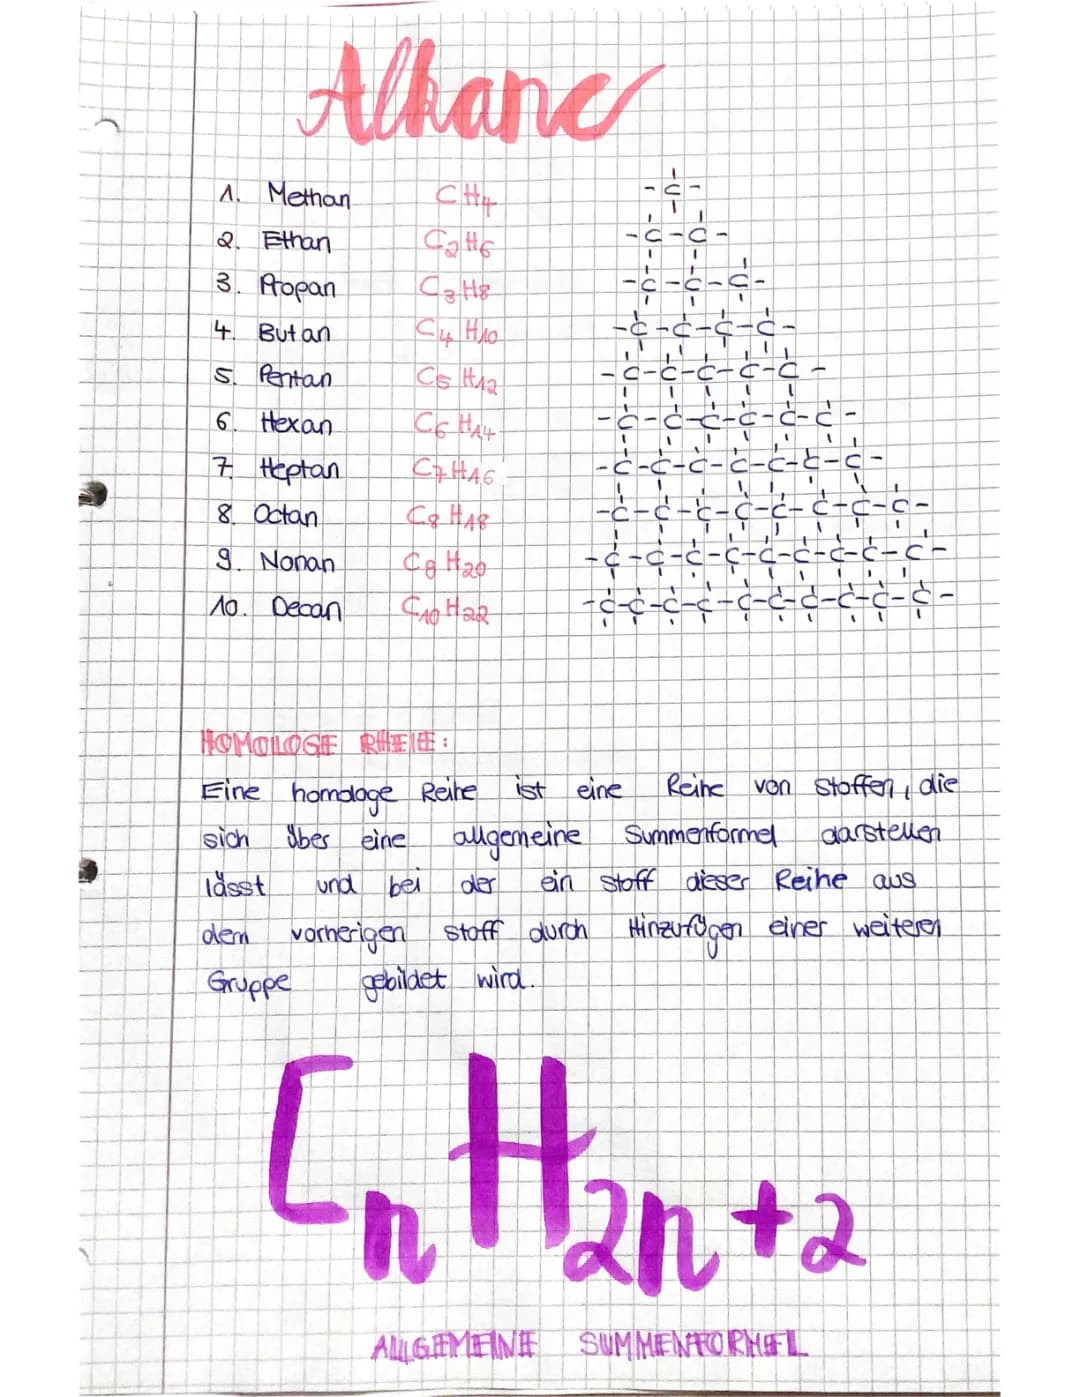 Alkane
1. Methan CH4 -C-
2. Ethan C2H6 -C-C-
3. Propan C3H8 -C-C-C-
4. Butan C4H10 -C-C-C-C-
5. Pentan C5H12 -C-C-C-C-C-
6. Hexan C6H14 -C-C-C-C-C-C-
7. Heptan C7H16 -C-C-C-C-C-C-C-
8. Octan C8H18 -C-C-C-C-C-C-C-C-
9. Nonan C9H20 -C-C-C-C-C-C-C-C-C-
10. Decan C10H22 -C-C-C-C-C-C-C-C-C-C-
HOMOLOGE RHEIE:
Eine homologe Reihe ist eine Reihe von Stoffen, die
sich über eine allgemeine Summenformel darstellen
lässt und bei der ein Stoff dieser Reihe aus
dem vorherigen Stoff durch Hinzufügen einer weiteren
Gruppe gebildet wird.
CnH2n+2
ALLGEMEINE SUMMENFORMEL